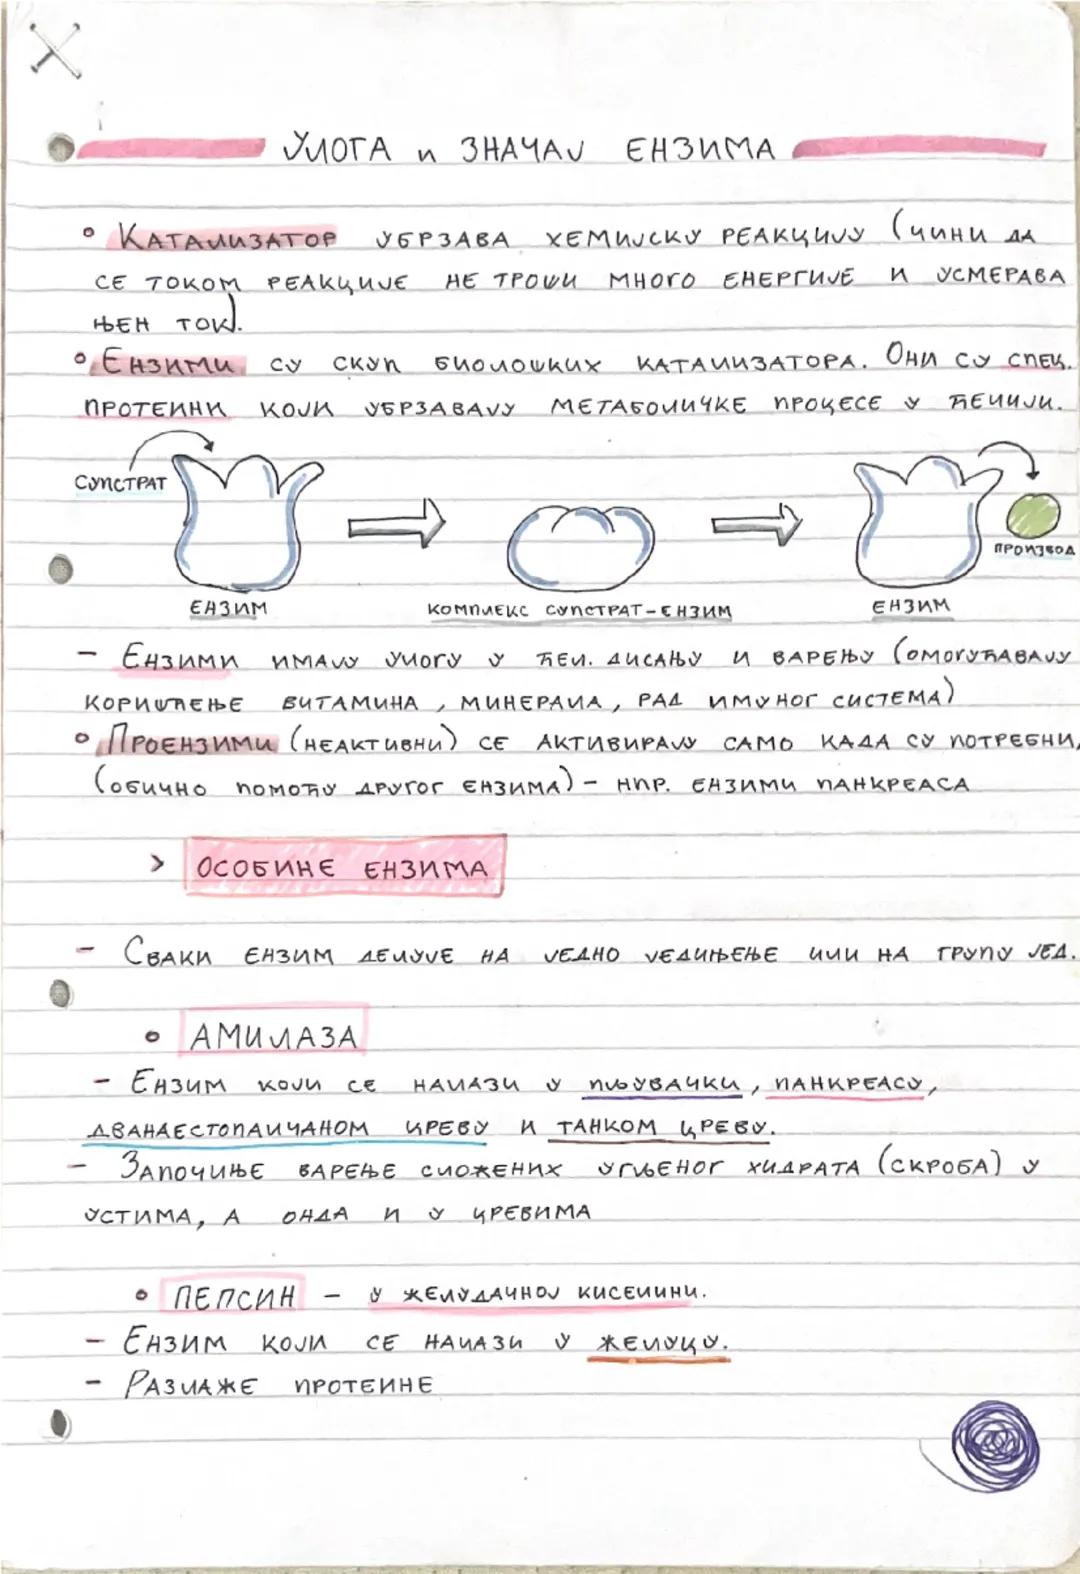 УЛОГА и ЗНАЧАЈ ЕНЗИМА
• КАТАЛИЗАТОР УБРЗАВА ХЕМИЈСКУ РЕАКЦИЈУ (ЧИНИ ДА
СЕ ТОКОМ РЕАКЦИЈЕ НЕ ТРОШИ МНОГО ЕНЕРГИЈЕ И УСМЕРАВА
ЊЕН ТОК).
• ЕНЗИМИ СУ СКУП БИОЛОШКИХ КАТАЛИЗАТОРА. ОНИ СУ СПЕЦ.
ПРОТЕИНИ КОЈИ УБРЗАВАЈУ МЕТАБОЛИЧКЕ ПРОЦЕСЕ У ЋЕЛИЈИ.
СУПСТРАТ
ПРОИЗВОД
ЕНЗИМ КОМПЛЕКС СУПСТРАТ-ЕНЗИМ ЕНЗИМ
- ЕНЗИМИ ИМАЈУ УЛОГУ У ЋЕЛ. ДИСАЊУ И ВАРЕЊУ (ОМОГУЋАВАЈУ
КОРИШЋЕЊЕ ВИТАМИНА, МИНЕРАЛА, РАД ИМУНОГ СИСТЕМА)
• ПРОЕНЗИМИ (НЕАКТИВНИ) СЕ АКТИВИРАЈУ САМО КАДА СУ ПОТРЕБНИ,
(ОБИЧНО ПОМОЋУ ДРУГОГ ЕНЗИМА) - НПР. ЕНЗИМИ ПАНКРЕАСА
> ОСОБИНЕ ЕНЗИМА
- СВАКИ ЕНЗИМ ДЕЛУЈЕ НА ЈЕДНО ЈЕДИЊЕЊЕ ИЛИ НА ГРУПУ ЈЕД.
• АМИЛАЗА
- ЕНЗИМ КОЈИ СЕ НАЛАЗИ У ПЉУВАЧКИ, ПАНКРЕАСУ,
ДВАНАЕСТОПАЛЧАНОМ ЦРЕВУ И ТАНКОМ ЦРЕВУ.
- ЗАПОЧИЊЕ ВАРЕЊЕ СЛОЖЕНИХ УГЉЕНОГ ХИДРАТА (СКРОБА) У
УСТИМА, А ОНДА И У ЦРЕВИМА
• ПЕПСИН - У ЖЕЛУДАЧНОЈ КИСЕЛИНИ.
- ЕНЗИМ КОЈИ СЕ НАЛАЗИ У ЖЕЛУЦУ.
- РАЗЛАЖЕ ПРОТЕИНЕ